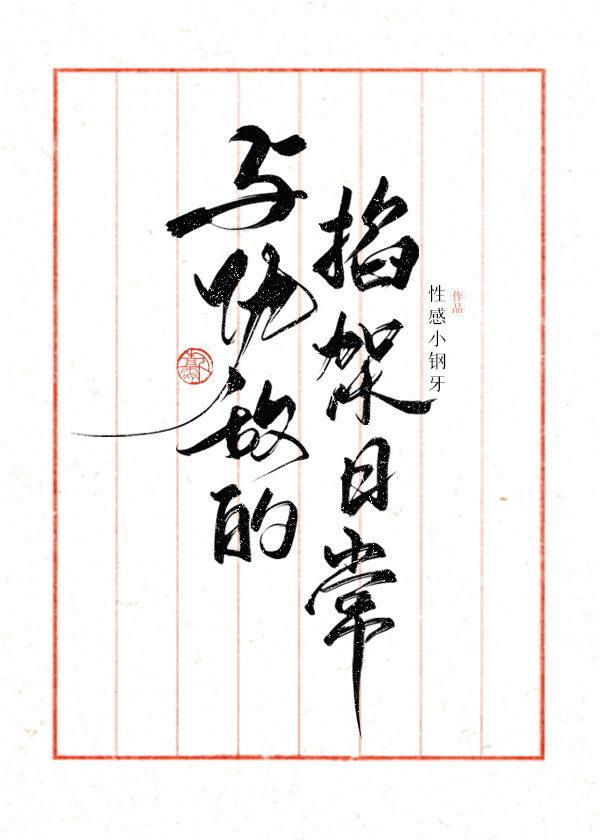 与仇敌的
掐架日常
性感小钢牙
作品